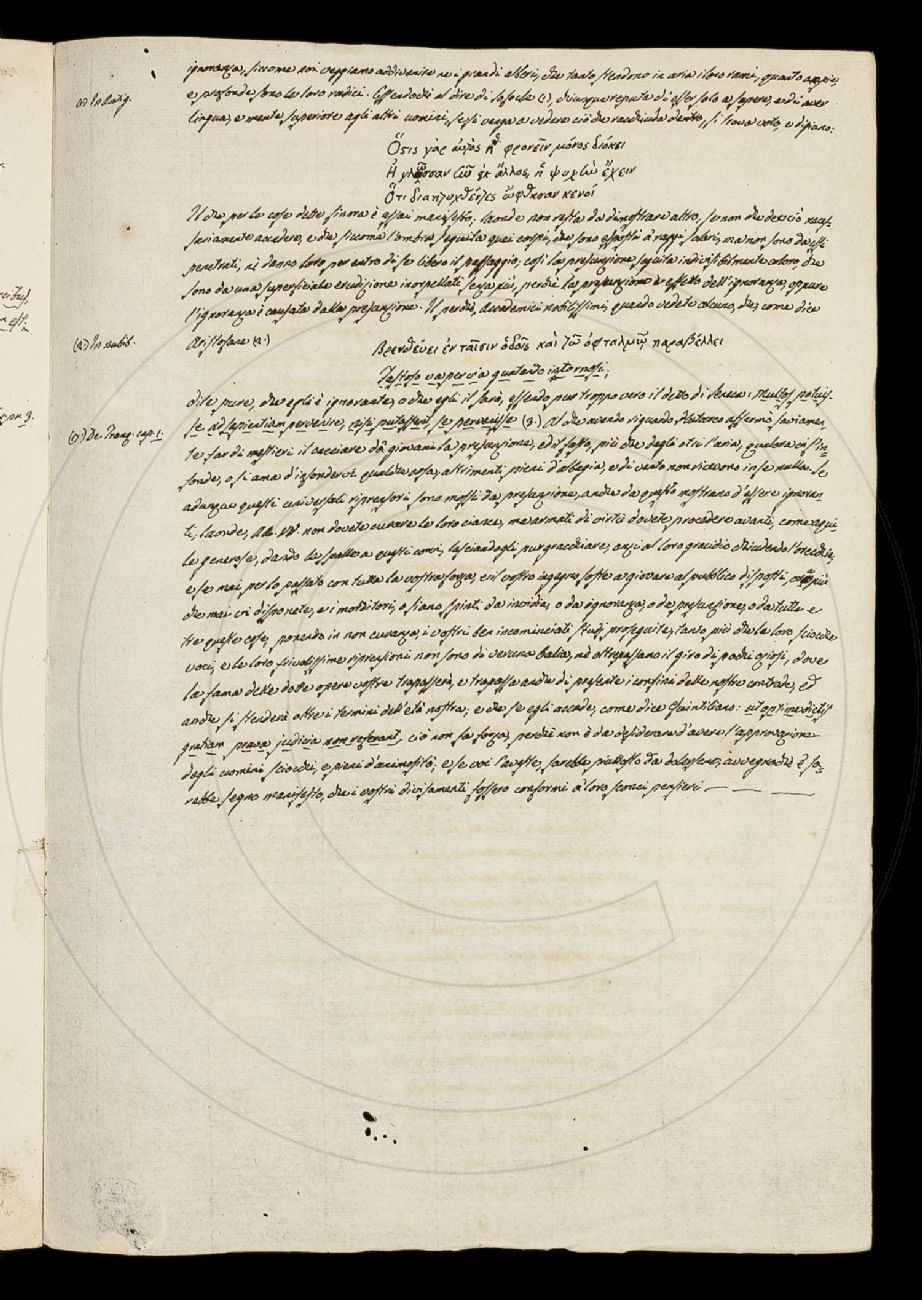 ignoranza, siccome noi veggiamo addivenire ne i grandi alberi, che tanto stendono in aria i loro rami, quanto ampie,
(1) In Antig.
e profonde sono le loro radici. Essendochè al dire di Sofocle (1), chiunque reputa di esser solo a sapere, e di aver
lingua, e mente superiore agli altri uomini, se si venga a vedere ciò che racchiuda dentro, si trova voto, e di piano:
Ὅστις γὰρ αὐτὸς ἢ φρονεῖν μόνος δοκει
Ἢ γλῶσσαν οὐκ ἄλλος, ἢ ψυχὴν ἔχειν
Ὅτι διαπτυχθέντες ὤφθησαν κενοί
Il che per le cose dette finora è assai manifesto; laonde non resta da dimostrare altro, se non che deve ciò neces-
sariamente accadere, e che siccome l'ombra seguita quei corpi, che sono esposti a' raggi solari, ma non sono da essi
penetrati, nè danno loro per entro di se libero il passaggio; così la presunzione seguita indivisibilmente coloro, che
sono da una superficiale erudizione inorpellati senza più, perchè la presunzione è effetto dell'ignoranza, oppure
l'ignoranza è causata dalla presunzione. Il perchè, Accademici nobilissimi, quando vedete alcuno, che, come dice
(2) In nubib.
Aristofane (2.)
Βρενθύει ἐν ταῖσιν ὁδοῖς καὶ τὼ ὀφταλμὼ παραβέλλει
Fastoso va per via guatando intornosi;
dite pure, che egli è ignorante, o che egli il sarà, essendo pur troppo vero il detto di Seneca: Multos potuis-
(3) De Tranq. cap. 1.
se ad sapientiam pervenire, nisi putassent, se pervenisse (3.) Al che avendo riguardo Plutarco affermò saviamen-
te far di mestieri il cacciare da' giovani la presunzione, ed il fasto, più che dagli otri l'aria, qualora vi s'in-
fonde, o si ama d'infondervi qualche cosa, altrimenti pieni d'albagia, e di vento non ricevono in se nulla. Se
adunque questi universali riprensori sono mossi da presunzione, anche da questo mostrano d'essere ignoran-
ti; laonde, AA. VV. non dovete curare le loro ciance, ma armati di virtù dovete procedere avanti, come aqui-
le generose, dando le spalle a questi corvi, lasciandogli pur gracchiare, anzi al loro gracidio chiudendo l'orecchie,
e se mai per lo passato con tutta la vostra forza, e il vostro ingegno foste a giovare al pubblico disposti, ora più
che mai vi disponete, e i morditori, o siano spinti da invidia, o da ignoranza, o da presunzione, o da tutte e
tre queste cose, ponendo in non curanza, i vostri ben incominciati studj proseguite, tanto più che le loro sciocche
voci, e le loro frivolissime riprensioni non sono di veruna balia, nè oltrepassano il giro di pochi oziosi, dove
la fama delle dotte opere vostre trapasserà, e trapassa anche di presente i confini delle nostre contrade, ed
anche si stenderà oltre i termini dell'età nostra; e che se egli accade, come dice Quintiliano: ut optime dictis
gratiam prava judicia non referant, ciò non fa forza, perchè non è da desiderare d'avere l'approvazione
degli uomini sciocchi, e pieni d'animosità; e se voi l'aveste, sarebbe piuttosto da dolersene, avvegnachè e' sa-
rebbe segno manifesto, che i vostri divisamenti fossero conformi a' loro sconci pensieri